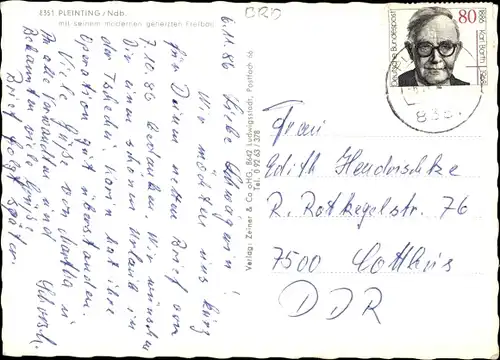 8351 PLEINTING / Ndb.
mit seinem modernen geheizten Freibad
BRD
6.11.86
Liebe Schwägerin!
Wir möchten uns kurz
für Deinen netten Brief vom
7.10.86 bedanken. Wir wünschen
Dir einen schönen Urlaub in
der Tschechei. Karin hat ihre
Operation gut überstanden.
Viele Grüße von Martha u.
an alle Verwandten und
Bekannten viele Grüße
Brief folgt später
Verlag: Zeiner & Co oHG, 8642 Ludwigsstadt, Postfach 66
Tel. 0 92 63 / 378
Deutsche Bundespost
80
1886 Karl Barth 1968
835
Frau
Edith
R. Rothkegelstr. 76
7500 Cottbus
DDR